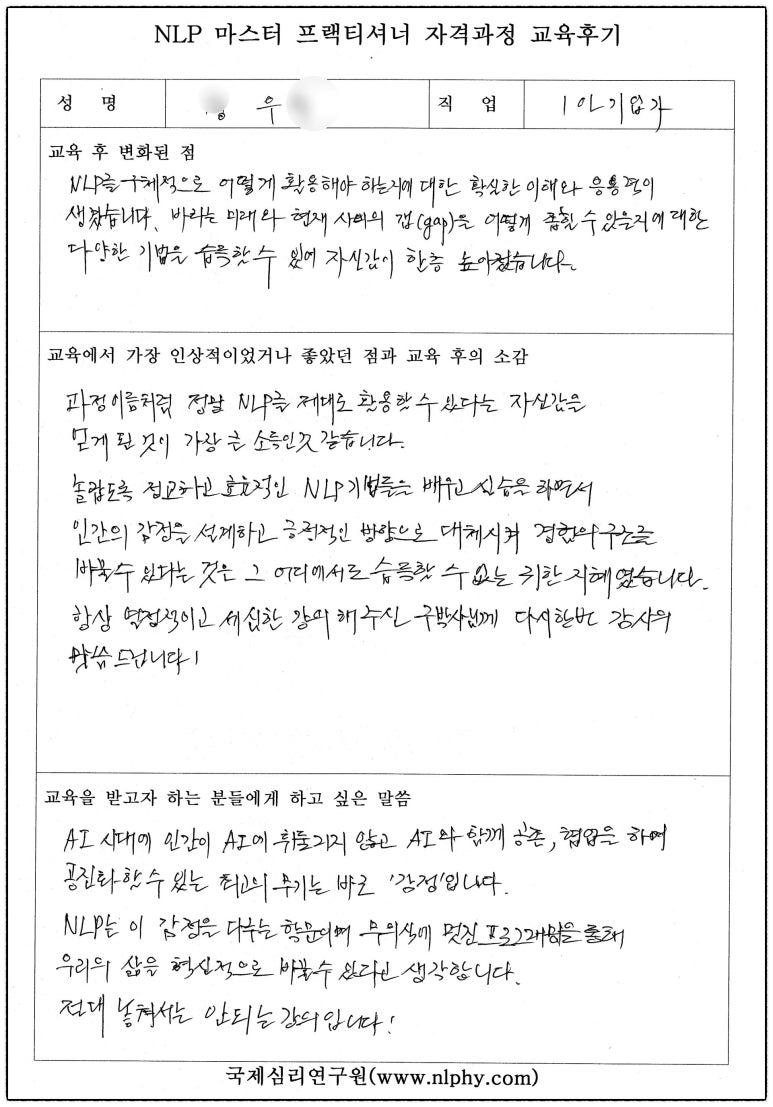 NLP 마스터 프랙티셔너 자격과정 교육후기
성 명 우 직 업 1인기업가
교육 후 변화된 점
NLP를 구체적으로 어떻게 활용해야 하는지에 대한 확실한 이해와 응용력이
생겼습니다. 바라는 미래와 현재 사이의 갭(gap)을 어떻게 좁힐 수 있을지에 대한
다양한 기법을 습득할 수 있어 자신감이 한층 높아졌습니다.
교육에서 가장 인상적이었거나 좋았던 점과 교육 후의 소감
과정이름처럼 정말 NLP를 제대로 활용할 수 있다는 자신감을
얻게 된 것이 가장 큰 소득인것 같습니다.
놀랍도록 정교하고 효과적인 NLP기법들을 배우고 실습을 하면서
인간의 감정을 설계하고 긍정적인 방향으로 대체시켜 경험의 구조를
바꿀 수 있다는 것은 그 어디에서도 습득할 수 없는 귀한 지혜였습니다.
항상 열정적이고 세심한 강의 해주신 구박사님께 다시한번 감사의
말씀드립니다!
교육을 받고자 하는 분들에게 하고 싶은 말씀
AI 시대에 인간이 AI에 휘둘리지 않고 AI와 함께 공존, 협업을 하여
공진화할 수 있는 최고의 무기는 바로 '감정'입니다.
NLP는 이 감정을 다루는 학문이며 무의식에 멋진 프로그래밍을 통해
우리의 삶을 혁신적으로 바꿀수 있다고 생각합니다.
절대 놓쳐서는 안되는 강의입니다!
국제심리연구원(www.nlphy.com)